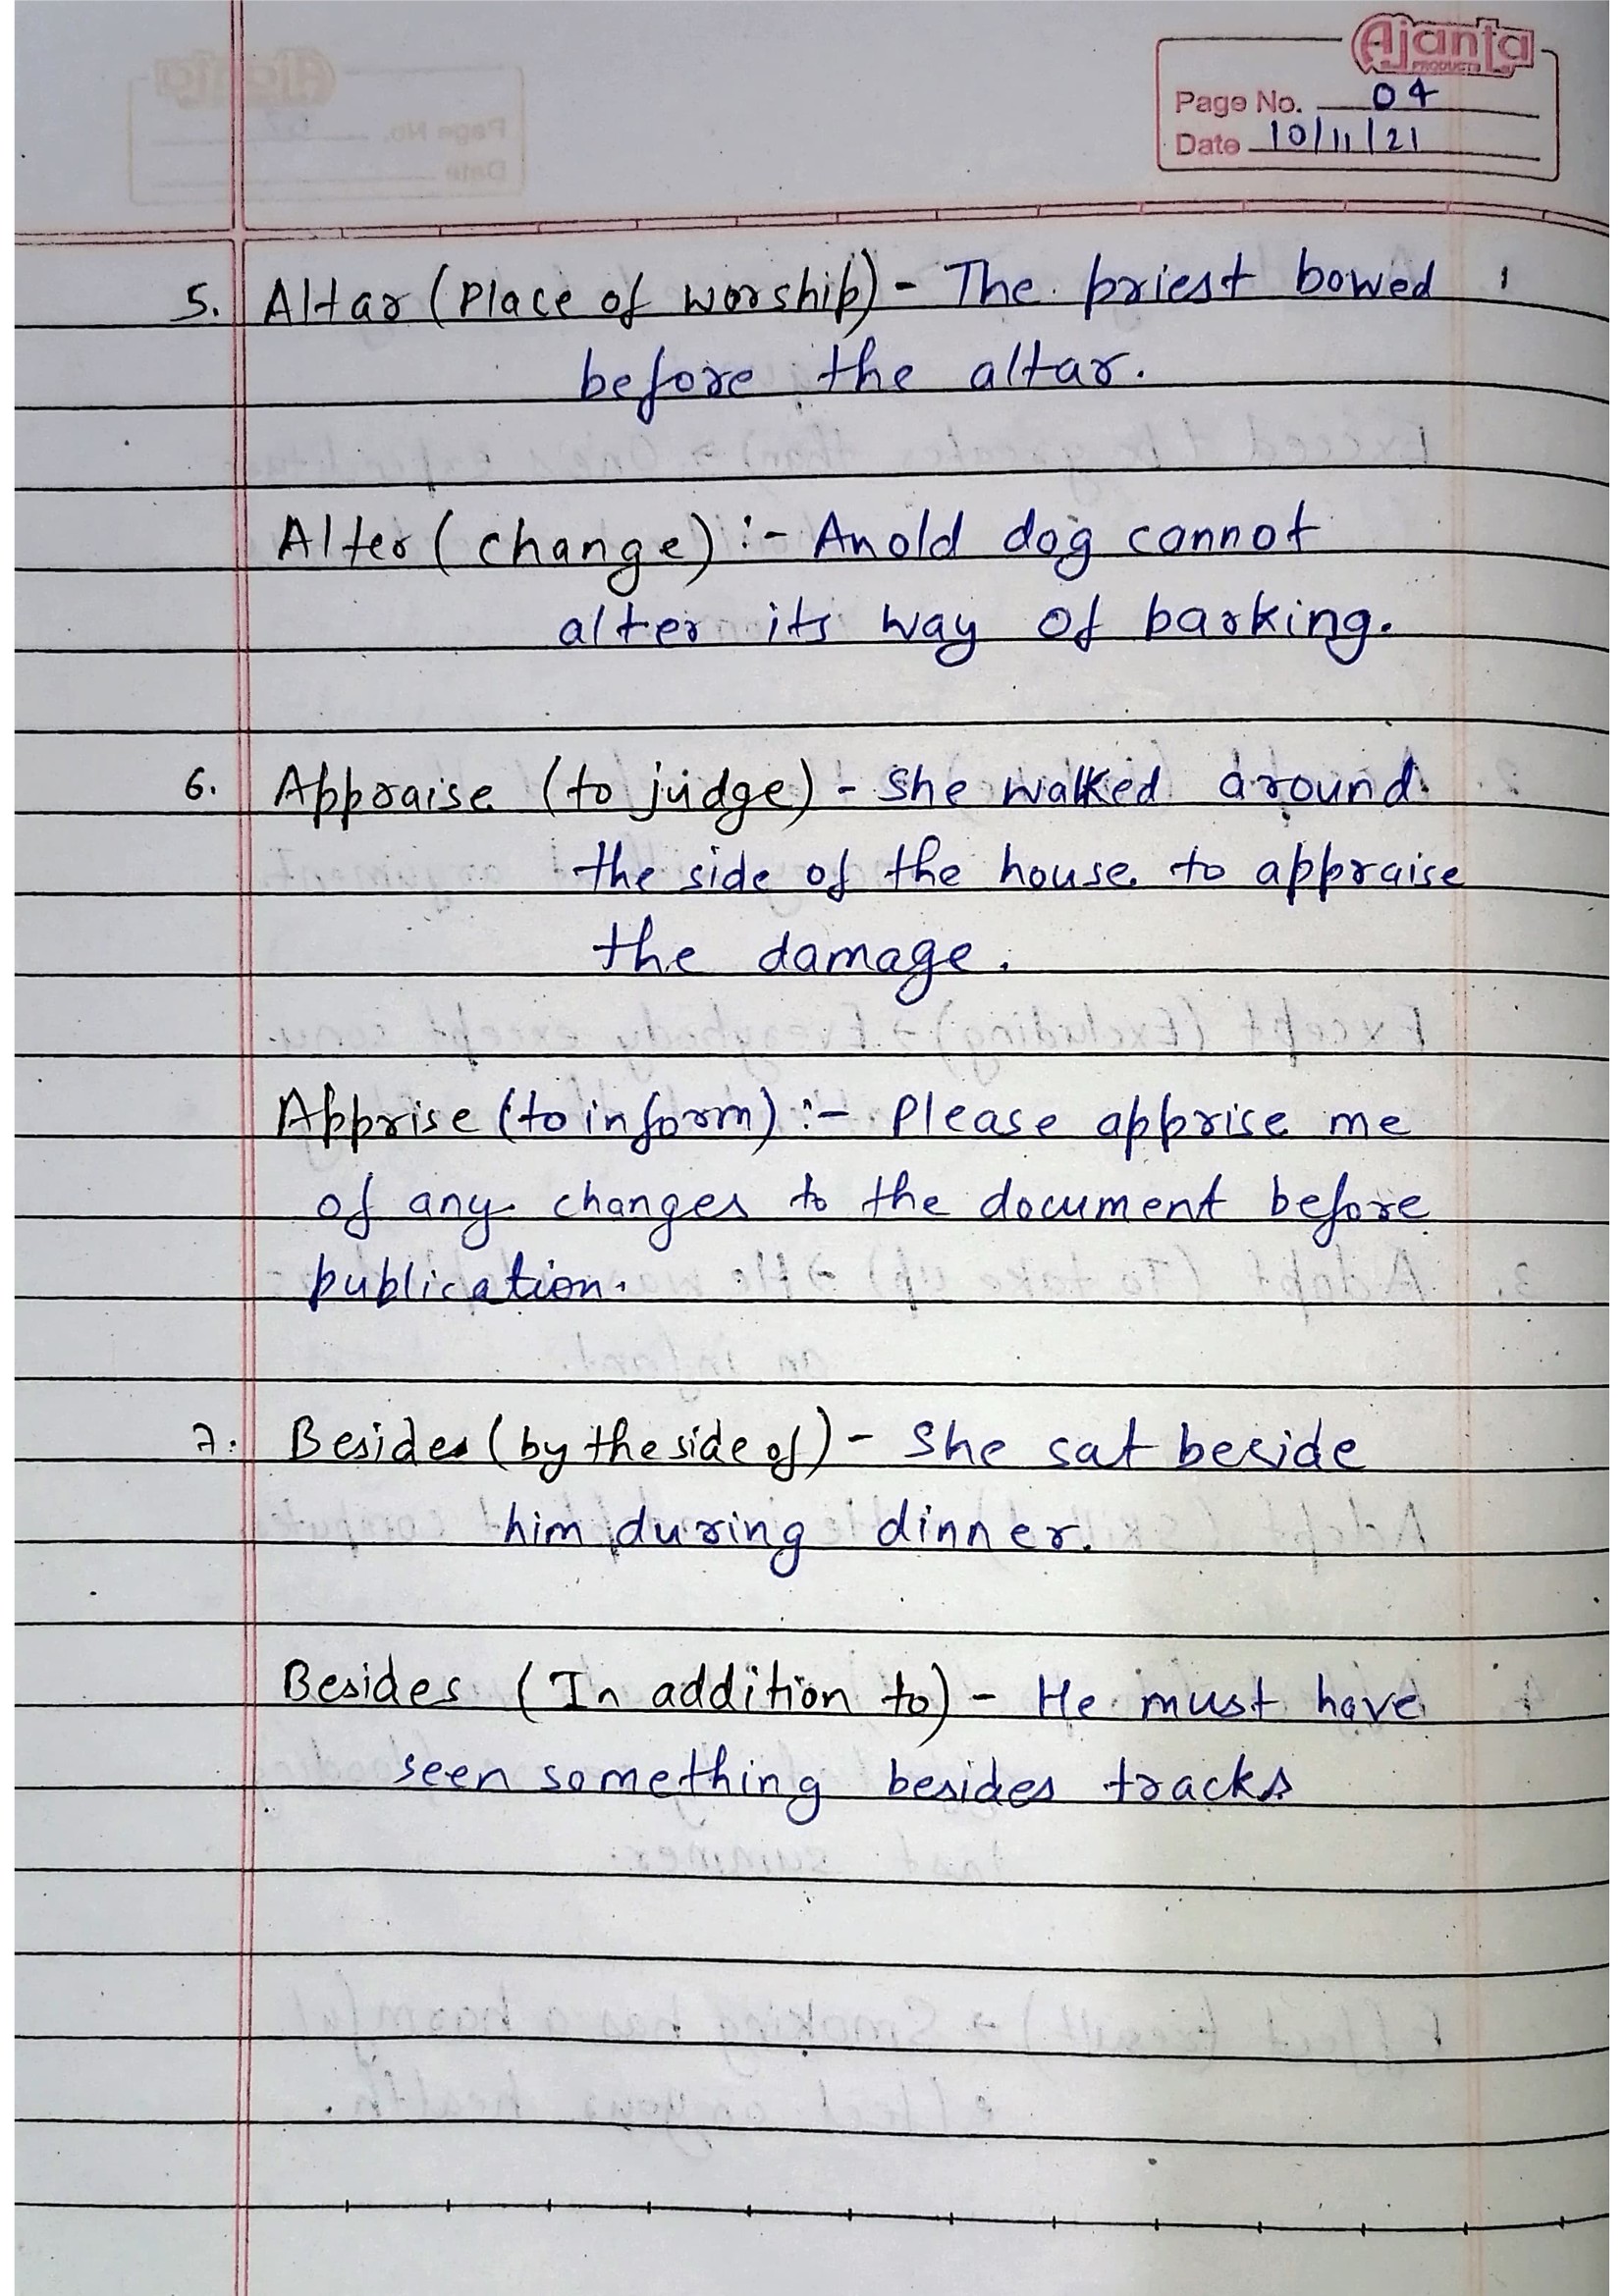 Ajanta
PRODUCTS
Page No. 04
Date 10/11/21
5. Altar (Place of worship) - The priest bowed
before the altar.
Alter (change) :- An old dog cannot
alter its way of barking.
6. Appraise (to judge) - She walked around
the side of the house to appraise
the damage.
Apprise (to inform) :- Please apprise me
of any changes to the document before
publication.
7. Besides (by the side of) - She sat beside
him during dinner.
Besides (In addition to) - He must have
seen something besides tracks